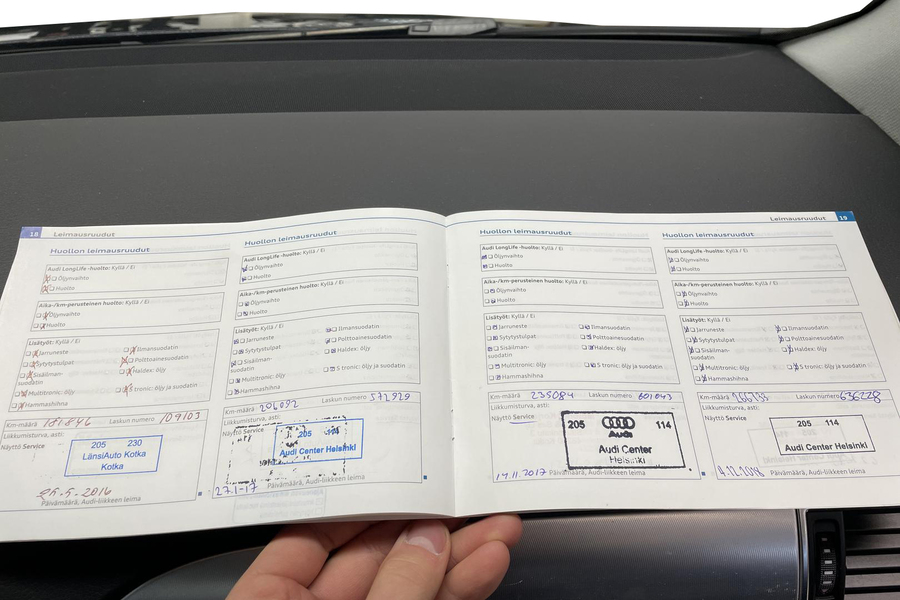 18 Leimausruudut
Huollon leimausruudut
Audi LongLife -huolto: Kyllä / Ei
Öljynvaihto
Huolto
Aika-/km-perusteinen huolto: Kyllä / Ei
Öljynvaihto
Huolto
Lisätyöt: Kyllä / Ei
Jarruneste
Ilmansuodatin
Sytytystulpat
Polttoainesuodatin
Sisäilman-
suodatin
Haldex: öljy
Multitronic: öljy
S tronic: öljy ja suodatin
Hammashihna
Km-määrä 181846 Laskun numero 109103
Liikkumisturva, asti:
Näyttö Service
205 230
LänsiAuto Kotka
Kotka
25.5-2016
Päivämäärä, Audi-liikkeen leima
Huollon leimausruudut
Audi LongLife -huolto: Kyllä / Ei
Öljynvaihto
Huolto
Aika-/km-perusteinen huolto: Kyllä / Ei
Öljynvaihto
Huolto
Lisätyöt: Kyllä / Ei
Jarruneste
Ilmansuodatin
Sytytystulpat
Polttoainesuodatin
Sisäilman-
suodatin
Haldex: öljy
Multitronic: öljy
S tronic: öljy ja suodatin
Hammashihna
Km-määrä 206092 Laskun numero 572929
Liikkumisturva, asti:
Näyttö Service
205 114
Audi Center Helsinki
27.1-17
Päivämäärä, Audi-liikkeen leima
Leimausruudut 19
Huollon leimausruudut
Audi LongLife -huolto: Kyllä / Ei
Öljynvaihto
Huolto
Aika-/km-perusteinen huolto: Kyllä / Ei
Öljynvaihto
Huolto
Lisätyöt: Kyllä / Ei
Jarruneste
Ilmansuodatin
Sytytystulpat
Polttoainesuodatin
Sisäilman-
suodatin
Haldex: öljy
Multitronic: öljy
S tronic: öljy ja suodatin
Hammashihna
Km-määrä 235084 Laskun numero 601043
Liikkumisturva, asti:
Näyttö Service
205 114
Audi
Audi Center
Helsinki
14.11.2017 Päivämäärä, Audi-liikkeen leima
Huollon leimausruudut
Audi LongLife -huolto: Kyllä / Ei
Öljynvaihto
Huolto
Aika-/km-perusteinen huolto: Kyllä / Ei
Öljynvaihto
Huolto
Lisätyöt: Kyllä / Ei
Jarruneste
Ilmansuodatin
Sytytystulpat
Polttoainesuodatin
Sisäilman-
suodatin
Haldex: öljy
Multitronic: öljy
S tronic: öljy ja suodatin
Hammashihna
Km-määrä Laskun numero 636228
Liikkumisturva, asti:
Näyttö Service
205 114
Audi Center Helsinki
4.12.2018
Päivämäärä, Audi-liikkeen leima